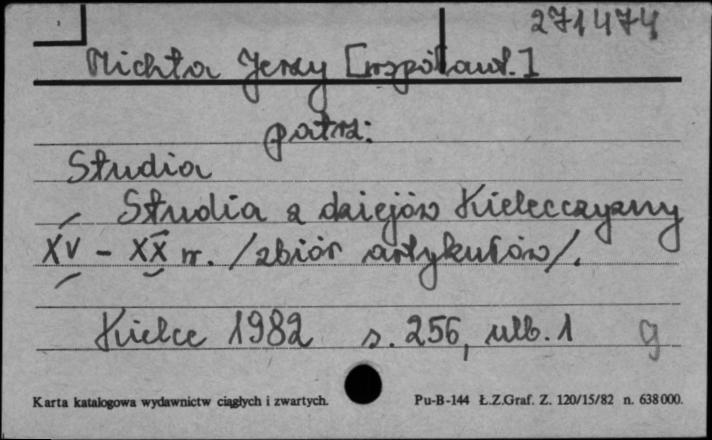 271474
Michta Jerzy [współaut.]
patrz:
Studia
Studia z dziejów Kielecczyzny
XV - XX w. /zbiór artykułów/.
Kielce 1982 s. 256, nlb. 1 g
Karta katalogowa wydawnictw ciągłych i zwartych. Pu-B-144 Ł.Z.Graf. Z. 120/15/82 n. 638000.